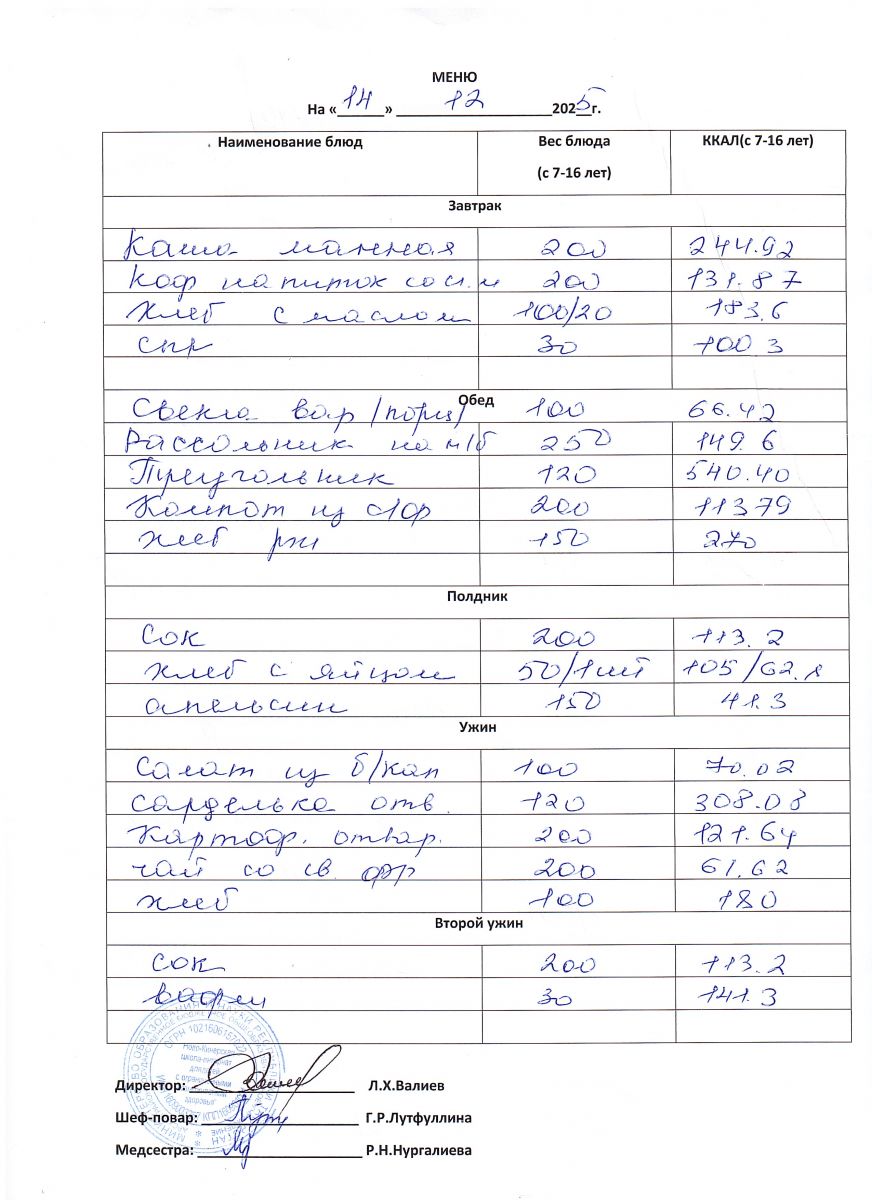 МЕНЮ
На « 14 » 12 2025 г.
Наименование блюд Вес блюда (с 7-16 лет) ККАЛ(с 7-16 лет)
Завтрак
Каша манная 200 244.92
Коф напиток со сг.м 200 131.87
Хлеб с маслом 100/20 183.6
сыр 30 100.3
Обед
Свекла вар (порц) 100 66.42
Рассольник на м/б 250 149.6
Треугольник 120 540.40
Компот из с/фр 200 11379
хлеб рж 150 270
Полдник
сок 200 113.2
хлеб с яйцом 50/1шт 105/62.8
апельсин 150 41.3
Ужин
Салат из б/кап 100 70.02
сарделька отв. 120 308.08
Картоф. отвар. 200 121.64
чай со св фр 200 61.62
хлеб 100 180
Второй ужин
сок 200 113.2
вафли 30 141.3
Директор: Л.Х.Валиев
Шеф-повар: Г.Р.Лутфуллина
Медсестра: Р.Н.Нургалиева